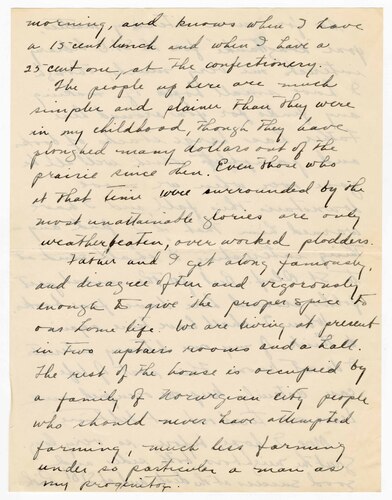 morning, and knows when I have
a 15 cent lunch and when I have a
25 cent one, at the confectionery.
The people up here are much
simpler and plainer than they were
in my childhood, though they have
ploughed many dollars out of the
prairie since then. Even those who
at that time were surrounded by the
most unattainable glories are only
weatherbeaten, over worked plodders.
Father and I get along famously,
and disagree often and vigorously
enough to give the proper spice to
our home life. We are living at present
in two upstairs rooms and a hall.
The rest of the house is occupied by
a family of Norwegian city people
who should never have attempted
farming, much less farming
under so particular a man as
my progenitor.